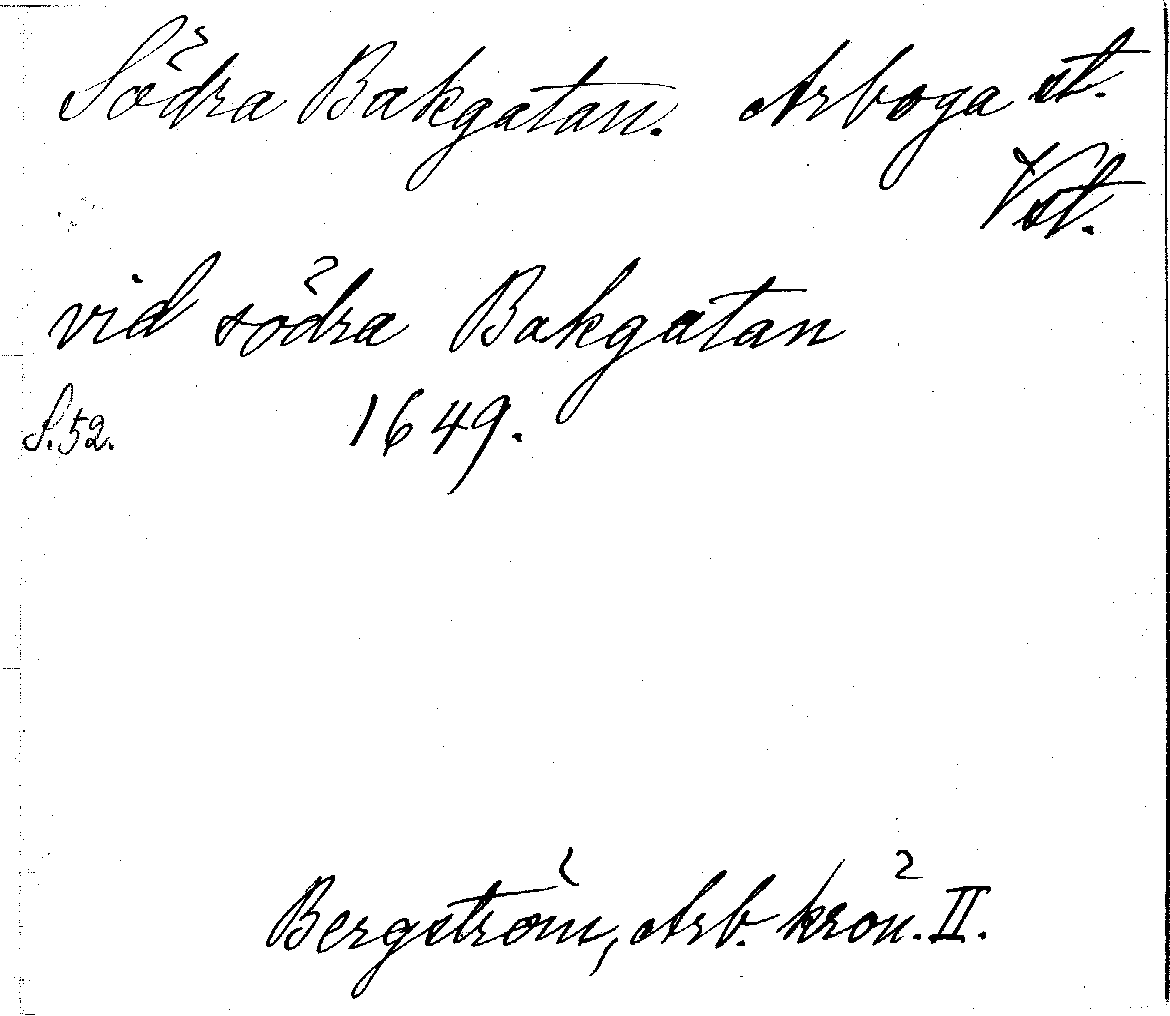 Södra Bakgatan. Arboga st.
Vst.
vid södra Bakgatan
S. 52. 1649.
Bergström, Arb. krön. II.